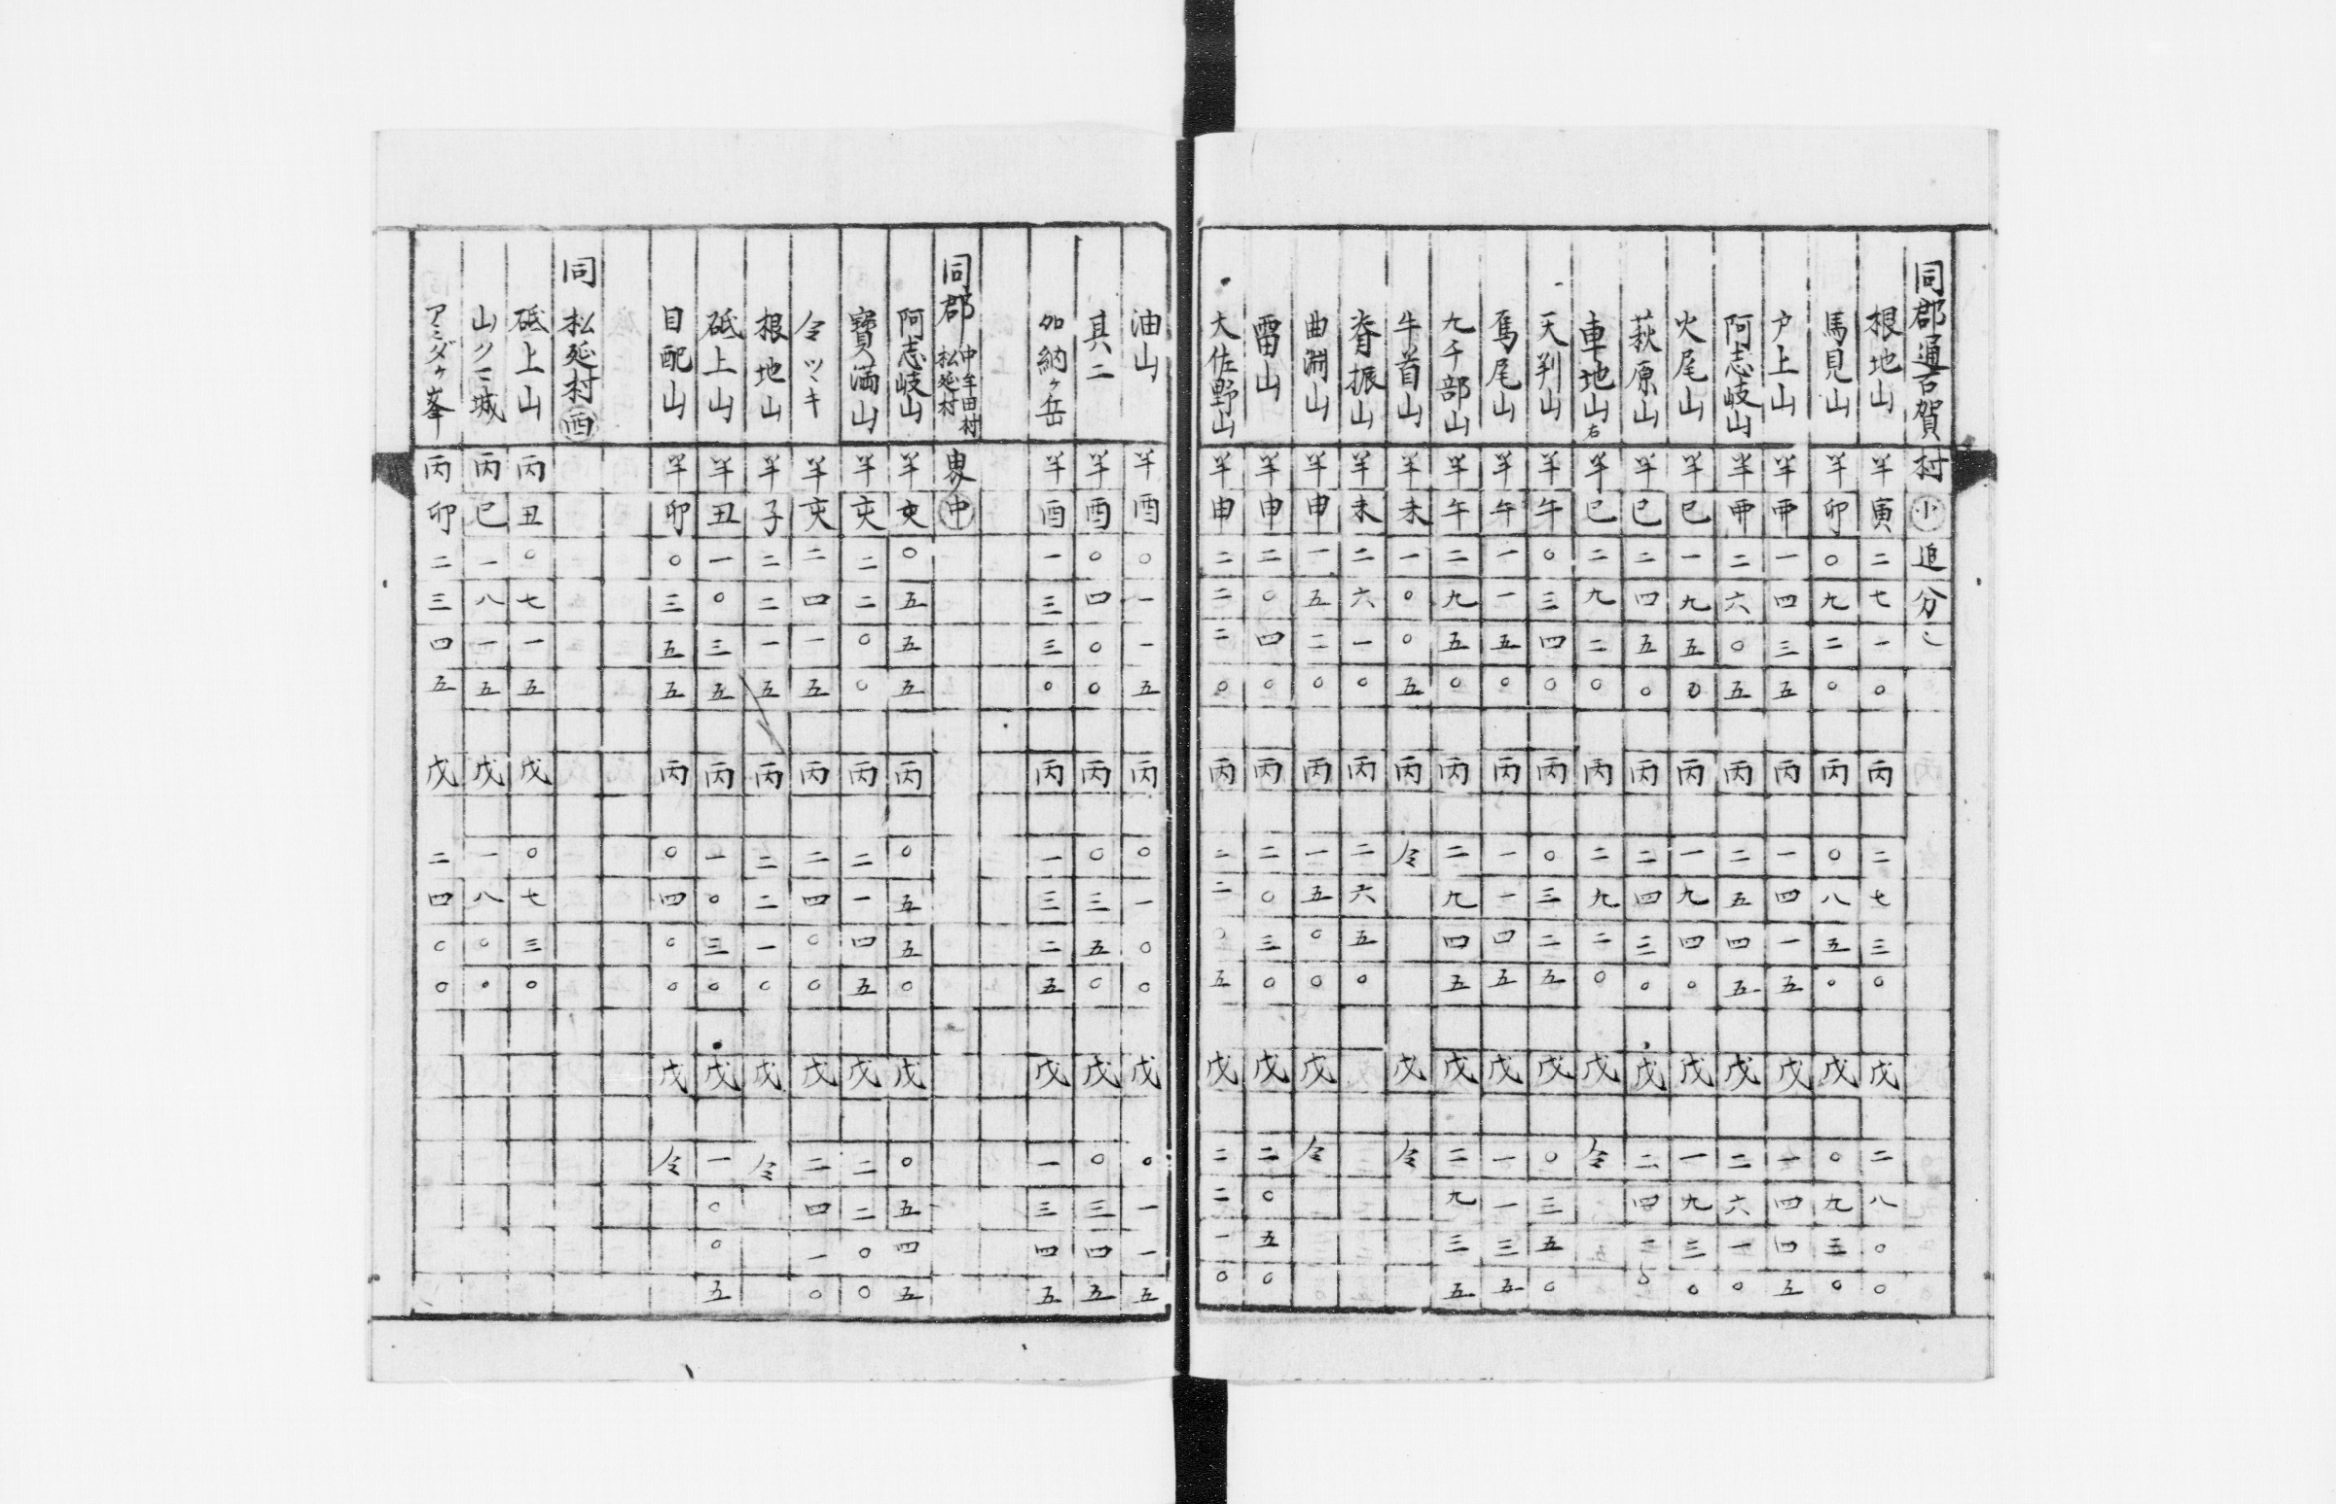 同郡通古賀村 小 追分ニ
根地山 半寅二七一〇 丙 二七三〇 戊 二八〇〇
馬見山 半卯〇九二〇 丙 〇八五〇 戊 〇九五〇
戸上山 半 一四三五 丙 一四一五 戊 一四四五
阿志岐山 半 二六〇五 丙 二五四五 戊 二六一〇
火尾山 半巳一九五〇 丙 一九四〇 戊 一九三〇
萩原山 半巳二四五〇 丙 二四三〇 戊 二四二
車地山右 半巳二九二〇 丙 二九二〇 戊 令
天判山 半午〇三四〇 丙 〇三二五 戊 〇三五〇
馬尾山 半午一一五〇 丙 一一四五 戊 一一三五
九千部山 半午二九五〇 丙 二九四五 戊 二九三五
牛首山 半未一〇〇五 丙 令 戊 令
脊振山 半未二六一〇 丙 二六五〇
曲渊山 半申一五二〇 丙 一五〇〇 戊 令
雷山 半申二〇四〇 丙 二〇三〇 戊 二〇五〇
大佐野山 半申二二二〇 丙 二二〇五 戊 二二一〇
油山 半酉〇一一五 丙 〇一〇〇 戊 〇一一五
其二 半酉〇四〇〇 丙 〇三五〇 戊 〇三四五
加納ヶ岳 半酉一三三〇 丙 一三二五 戊 一三四五
同郡 中牟田村 松延村 界 中
阿志岐山 半亥〇五五五 丙 〇五五〇 戊 〇五四五
寶満山 半亥二二〇〇 丙 二一四五 戊 二二〇〇
令ツヽキ 半亥二四一五 丙 二四〇〇 戊 二四一〇
根地山 半子二二一五 丙 二二一〇 戊 令
砥上山 半丑一〇三五 丙 一〇三〇 戊 一〇〇五
目配山 半卯〇三五五 丙 〇四〇〇 戊 令
同 松延村 西
砥上山 丙丑〇七一五 戊 〇七三〇
山クミ城 丙巳一八一五 戊 一八〇〇
アミダヶ峯 丙卯二三四五 戊 二四〇〇